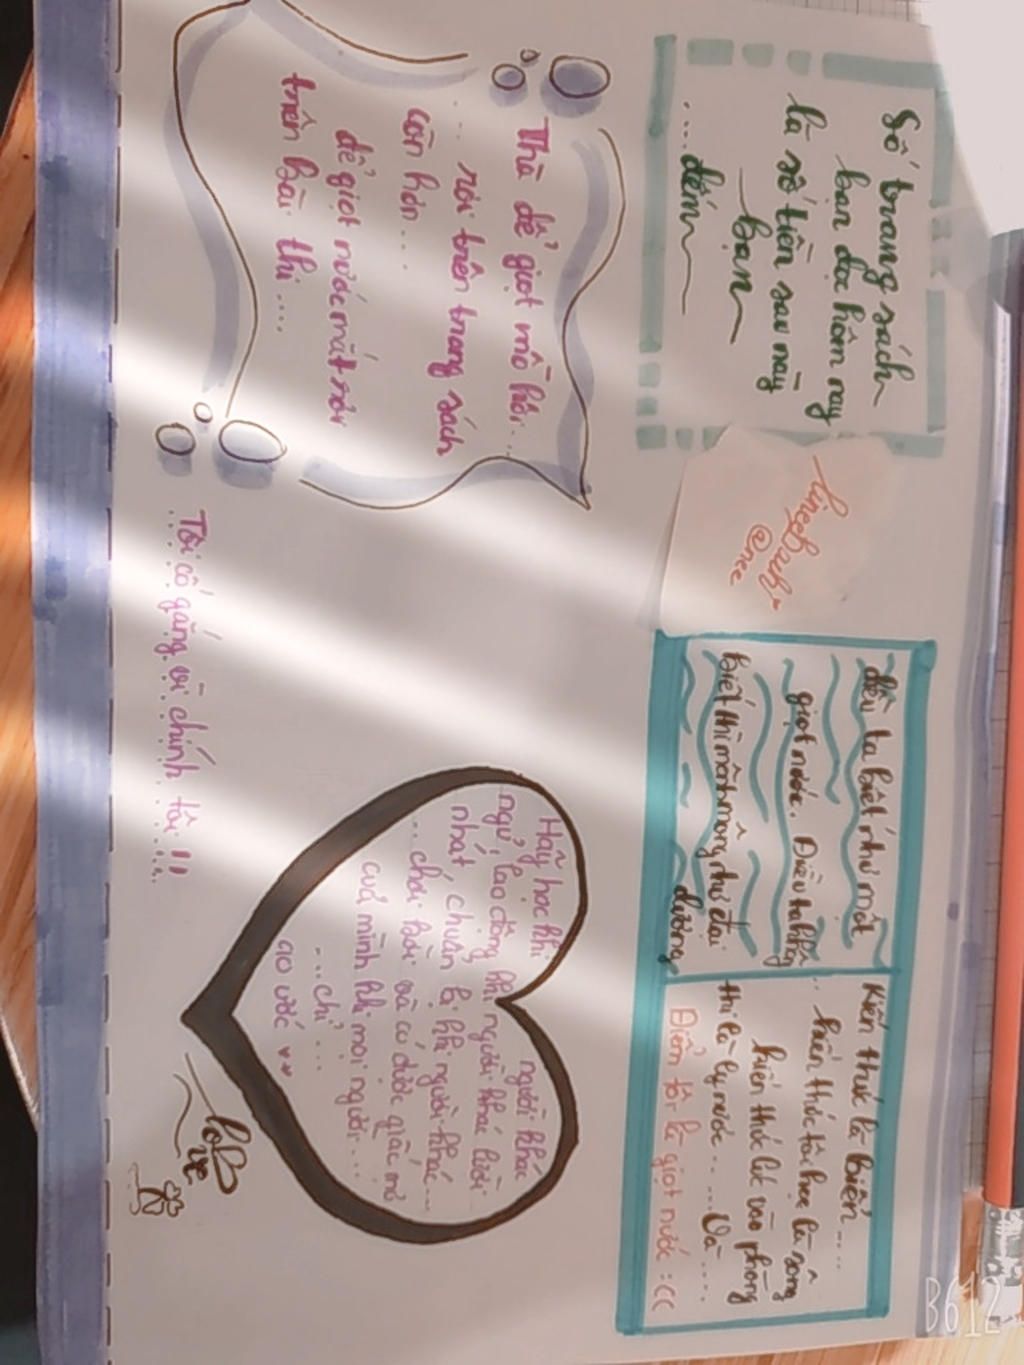 Số trang sách
bạn đọc hôm nay
là số tiền sau này
bạn
...đếm
Thà để giọt mồ hôi...
... rơi trên trang sách
còn hơn...
để giọt nước mắt rơi
trên bài thi....
@nee
điều ta biết như một
giọt nước. Điều ta không
biết thì mênh mông như đại
dương
Kiến thức là biển....
.. kiến thức tôi học là sông
kiến thức lúc vào phòng
thi là ly nước.... Và....
Điểm tôi là giọt nước :((
Hãy học khi người khác
ngủ, lao động khi người khác lười
nhát, chuẩn bị khi người khác...
...chơi bời và có được giấc mơ
cuả mình khi mọi người...
...chỉ...
ao ước
love
Tôi cố gắng vì chính tôi !!
B612